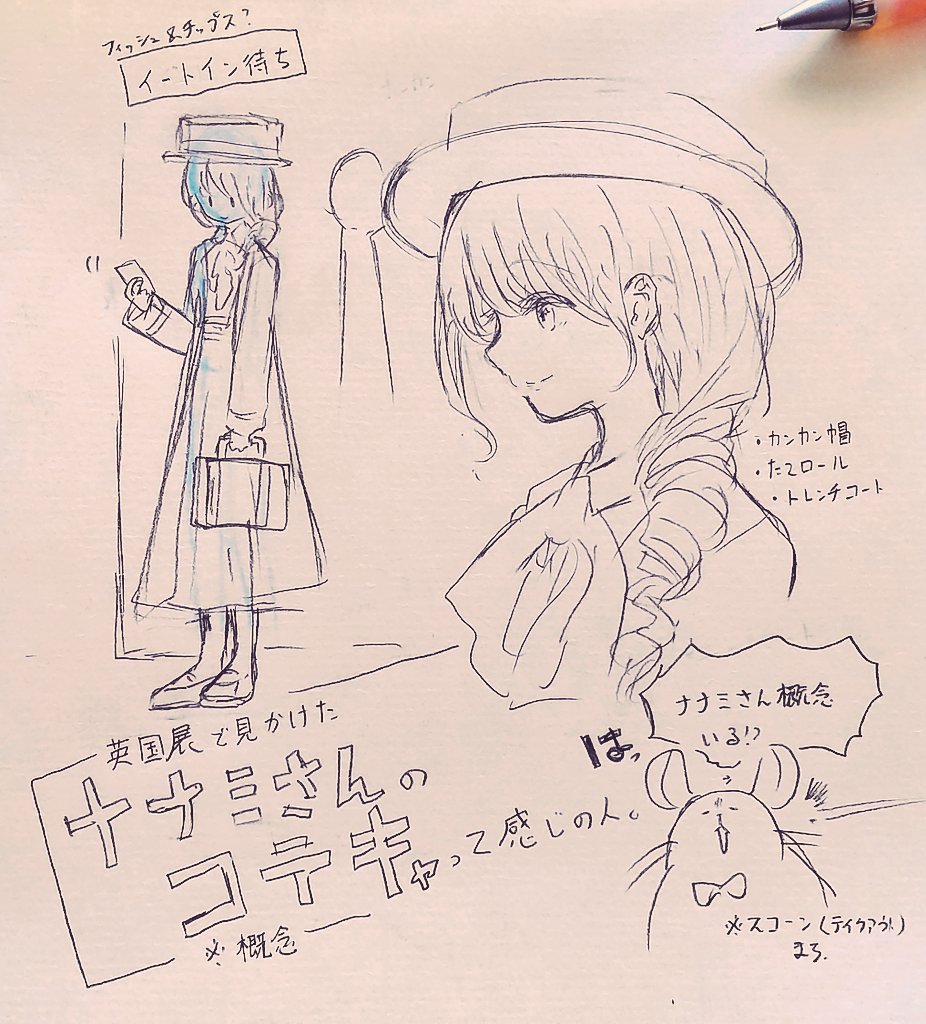 フィッシュ&チップス?
イートイン待ち
・カンカン帽
・たてロール
・トレンチコート
ナナミさん概念
いる!?
はっ
英国展で見かけた
ナナミさんの
コテキャって感じの人。
※概念
※スコーン(テイクアウト)
まち.